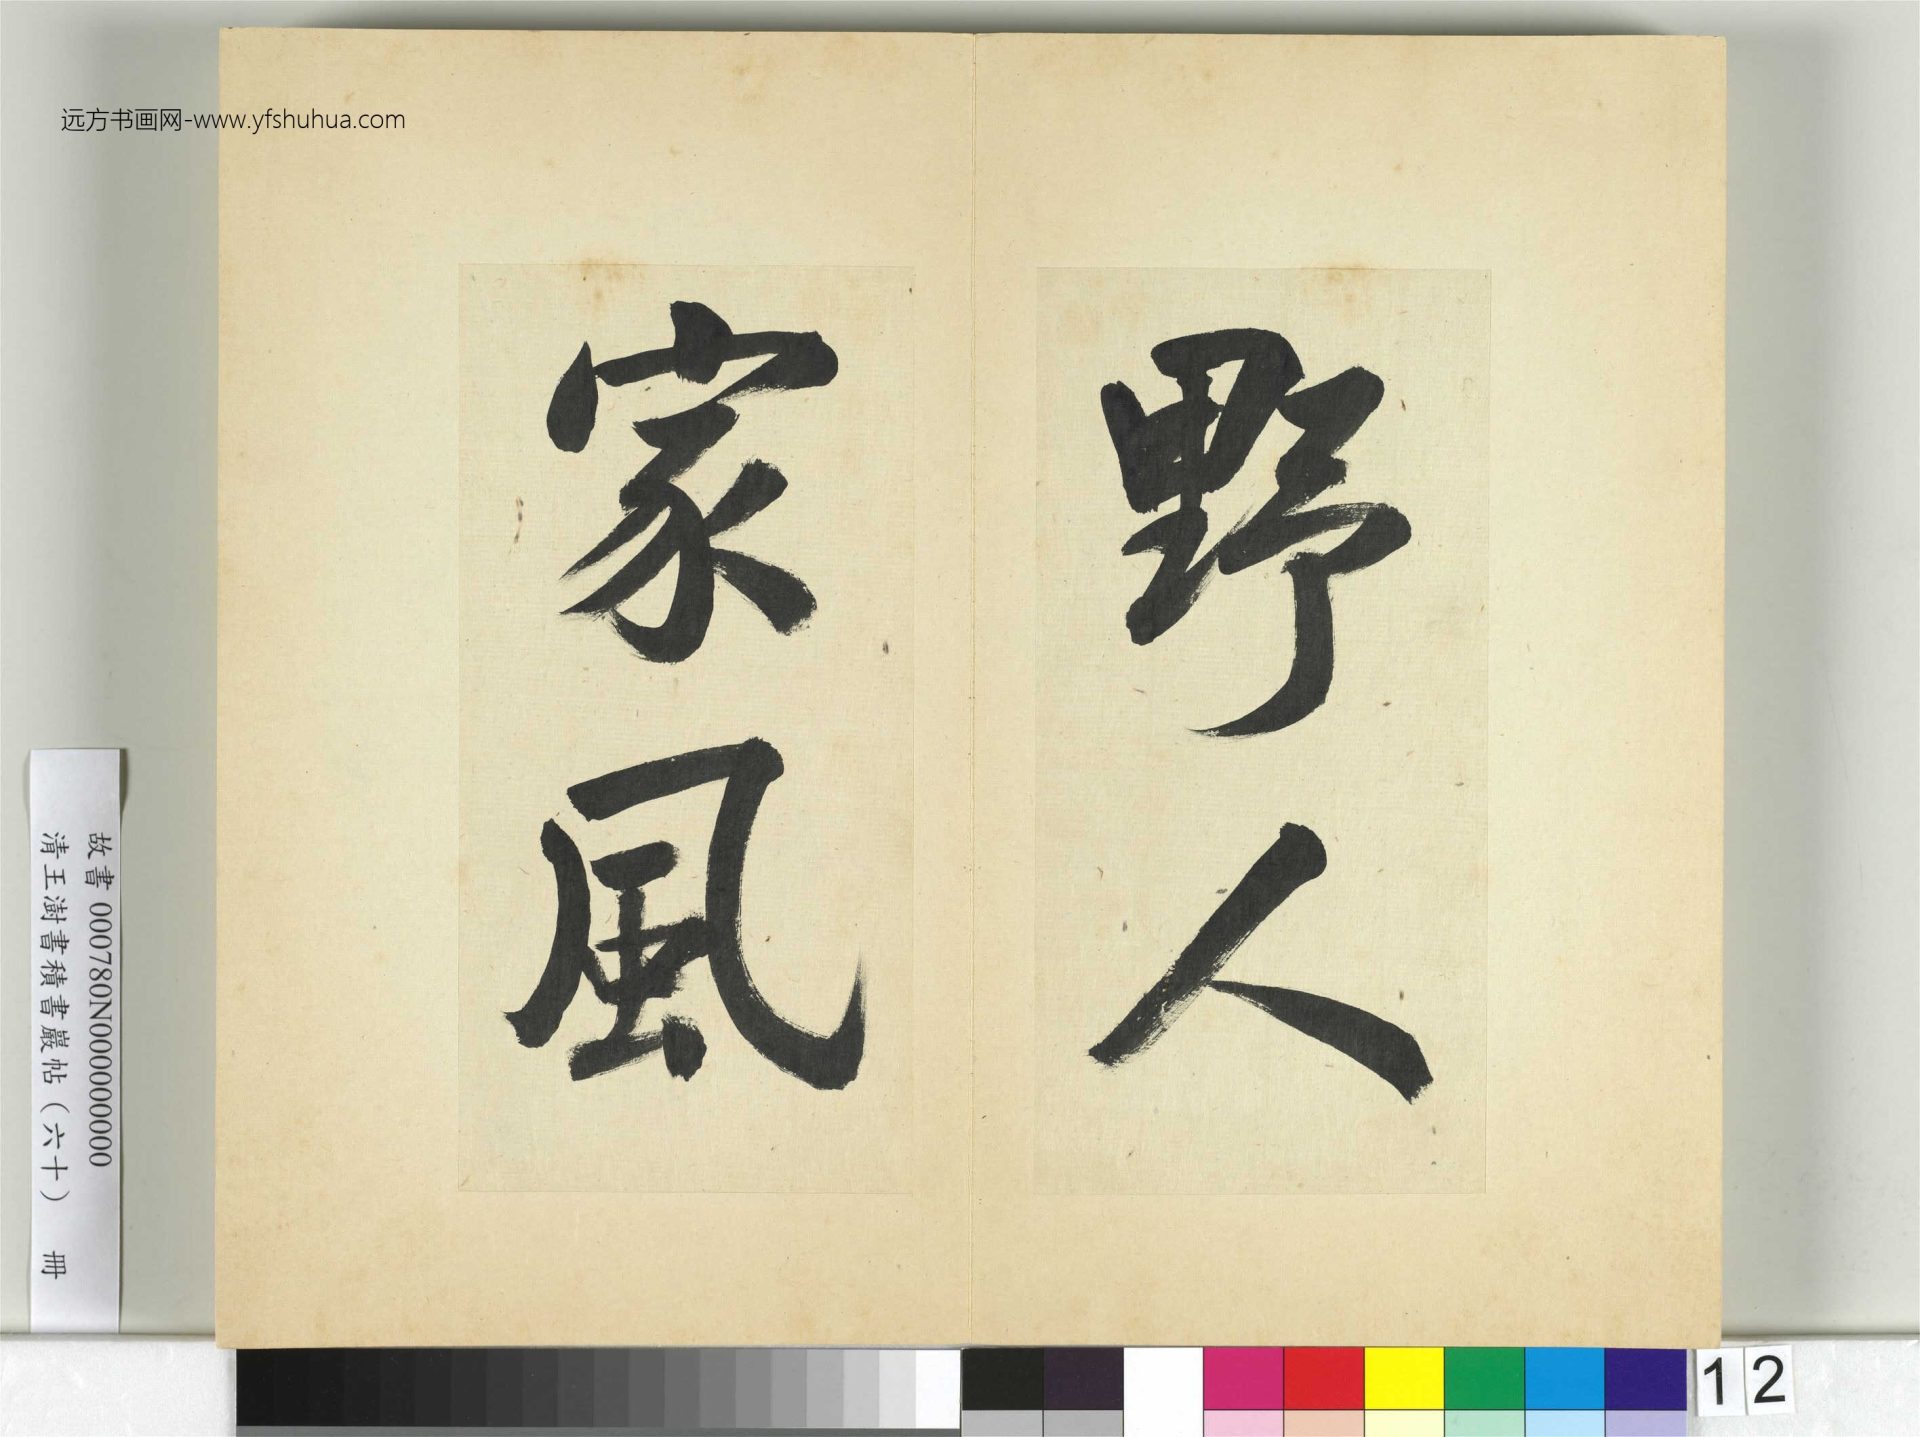 远方书画网-www.yfshuhua.com
野人
家風
故書 000780N000000000
清王澍書積書巖帖（六十） 冊
12